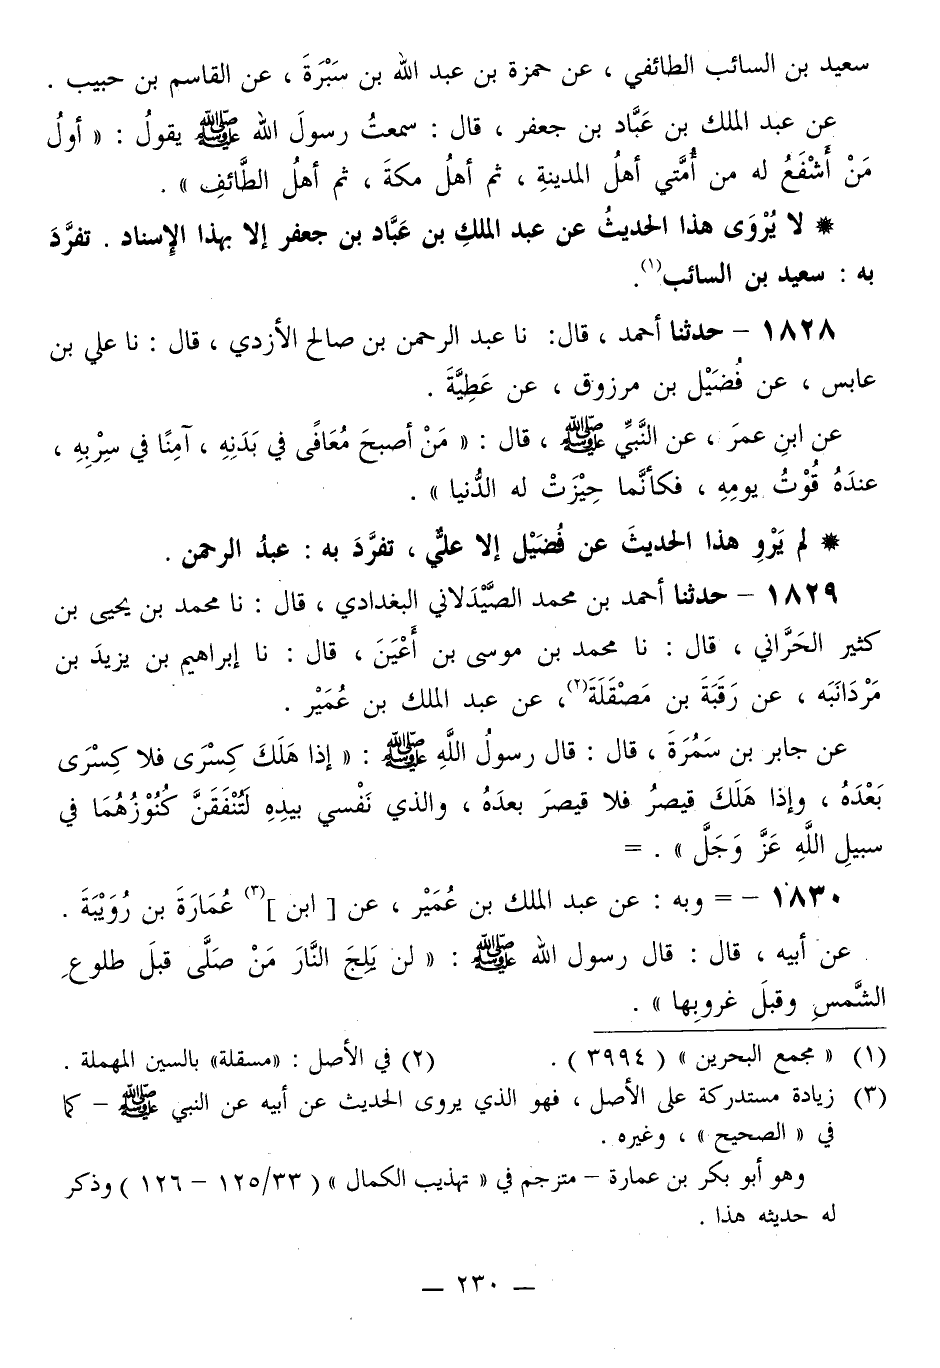 سعيد بن السائب الطائفي ، عن حمزة بن عبد الله بن سَبْرَةَ ، عن القاسم بن حبيب .
عن عبد الملك بن عَبَّاد بن جعفر ، قال : سمعتُ رسولَ الله ﷺ يقولُ : « أولُ
مَنْ أَشْفَعُ له من أُمَّتي أهلُ المدينةِ ، ثم أهلُ مكةَ ، ثم أهلُ الطَّائفِ » .
* لا يُرْوَى هذا الحديثُ عن عبد الملكِ بن عَبَّاد بن جعفر إلا بهذا الإسناد . تفرَّدَ
به : سعيد بن السائب(١).
١٨٢٨ – حدثنا أحمد ، قال: نا عبد الرحمن بن صالح الأزدي ، قال : نا علي بن
عابس ، عن فُضَيْل بن مرزوق ، عن عَطِيَّةَ .
عن ابنِ عمرَ ، عن النَّبيِّ ﷺ ، قال : « مَنْ أصبحَ مُعَافًى في بَدَنِهِ ، آمنًا في سِرْبِهِ ،
عندَهُ قُوْتُ يومِهِ ، فكأنَّما حِيْزَتْ له الدُّنيا » .
* لم يَرْوِ هذا الحديثَ عن فُضَيْل إلا عليٌّ ، تفرَّدَ به : عبدُ الرحمن .
١٨٢٩ – حدثنا أحمد بن محمد الصَّيْدَلاني البغدادي ، قال : نا محمد بن يحيى بن
كثير الحَرَّاني ، قال : نا محمد بن موسى بن أَعْيَنَ ، قال : نا إبراهيم بن يزيدَ بن
مَرْدَانَبَه ، عن رَقَبَةَ بن مَصْقَلَةَ(٢)، عن عبد الملك بن عُمَيْر .
عن جابر بن سَمُرَةَ ، قال : قال رسولُ اللَّهِ ﷺ : « إذا هَلَكَ كِسْرَى فلا كِسْرَى
بَعْدَهُ ، وإذا هَلَكَ قيصرُ فلا قيصرَ بعدَهُ ، والذي نَفْسي بيدِهِ لَتُنْفَقَنَّ كُنُوْزُهُمَا في
سبيلِ اللَّهِ عَزَّ وَجَلَّ » . =
١٨٣٠ – = وبه : عن عبد الملك بن عُمَيْر ، عن [ ابن ](٣) عُمَارَةَ بن رُوَيْبَةَ .
عن أبيه ، قال : قال رسول الله ﷺ : « لن يَلِجَ النَّارَ مَنْ صَلَّى قبلَ طلوعِ
الشَّمسِ وقبلَ غروبِها » .
(١) « مجمع البحرين » ( ٣٩٩٤ ) .    (٢) في الأصل : «مسقلة» بالسين المهملة .
(٣) زيادة مستدركة على الأصل ، فهو الذي يروى الحديث عن أبيه عن النبي ﷺ – كما
في « الصحيح » ، وغيره .
وهو أبو بكر بن عمارة – مترجم في « تهذيب الكمال » ( ١٢٥/٣٣ – ١٢٦ ) وذكر
له حديثه هذا .
— ٢٣٠ —